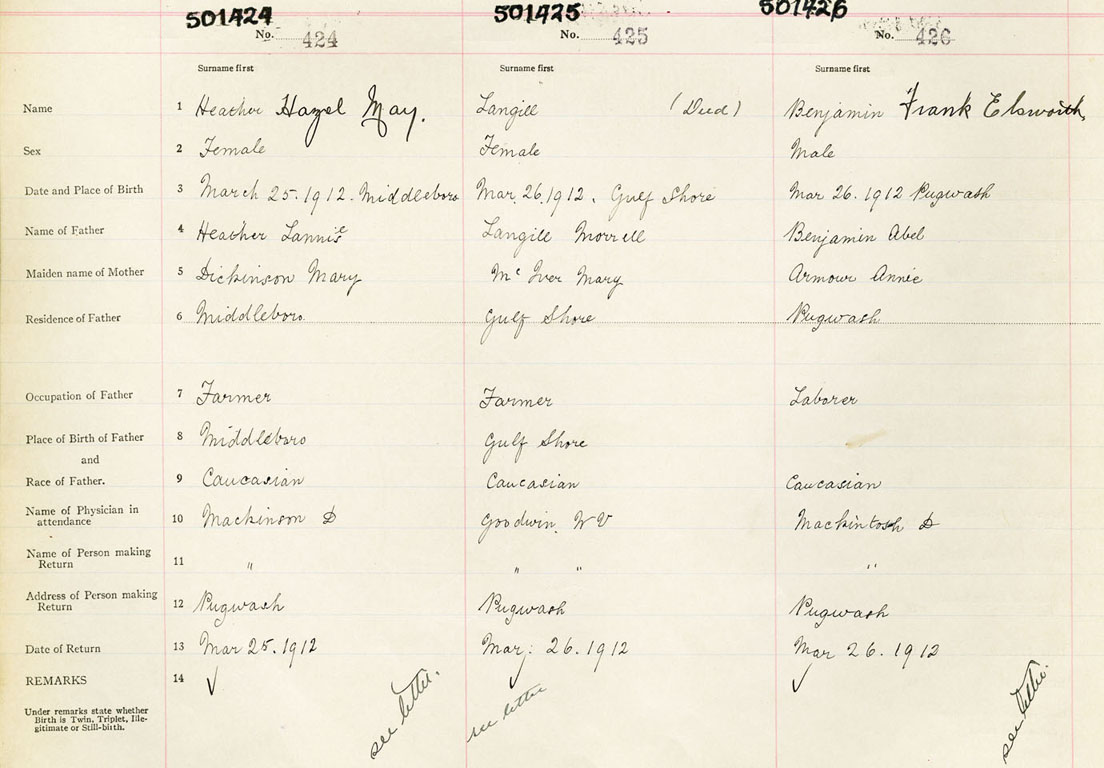 501424 501425 501426
No. 424 No. 425 No. 426
Surname first Surname first Surname first
Name 1 Heather Hazel May. Langill (Died) Benjamin Frank Elsworth,
Sex 2 Female Female Male
Date and Place of Birth 3 March 25. 1912. Middleboro Mar. 26. 1912. Gulf Shore Mar 26. 1912 Pugwash
Name of Father 4 Heather Lannis Langill Morrell Benjamin Abel
Maiden name of Mother 5 Dickinson Mary McIver Mary Armour Annie
Residence of Father 6 Middleboro. Gulf Shore Pugwash
Occupation of Father 7 Farmer Farmer Laborer
Place of Birth of Father 8 Middleboro Gulf Shore
and
Race of Father. 9 Caucasian Caucasian Caucasian
Name of Physician in
attendance 10 Mackinson D Goodwin. W V Mackintosh D
Name of Person making
Return 11 " " " "
Address of Person making
Return 12 Pugwash Pugwash Pugwash
Date of Return 13 Mar 25. 1912 Mar: 26. 1912 Mar 26. 1912
REMARKS 14 ✓ ✓ ✓
Under remarks state whether
Birth is Twin, Triplet, Ille-
gitimate or Still-birth.
see letter. see letter see letter.